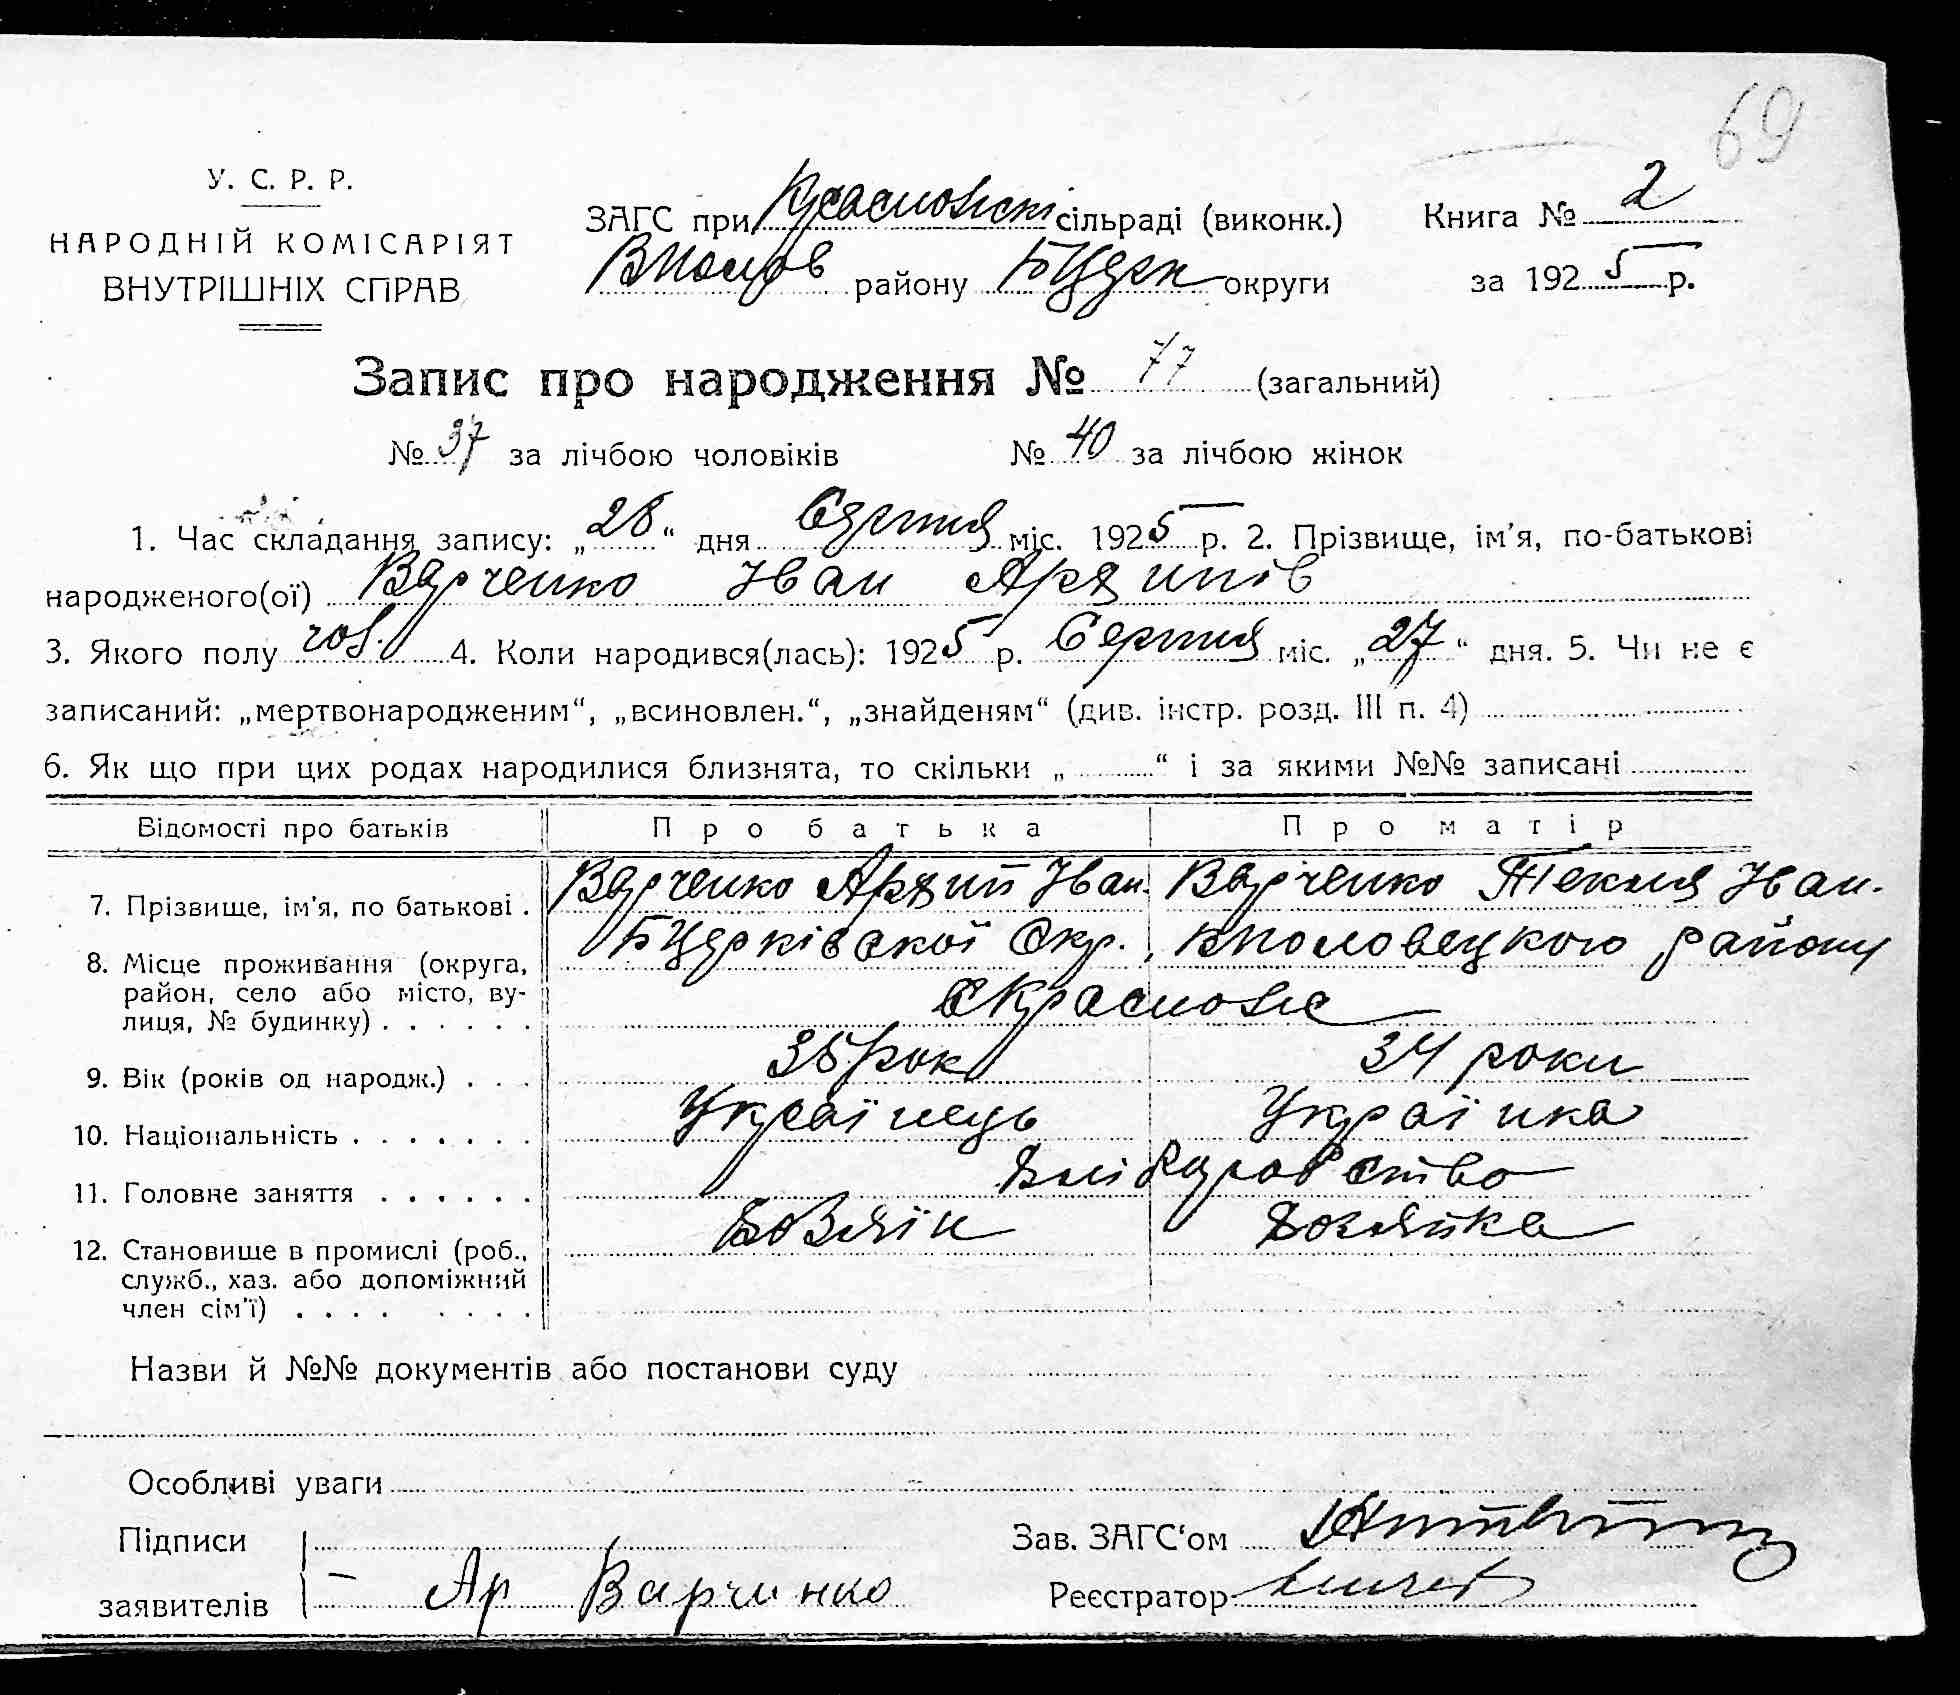 69
У. С. Р. Р.
НАРОДНІЙ КОМІСАРІЯТ
ВНУТРІШНІХ СПРАВ
ЗАГС при сільраді (виконк.) Книга № 2
району БЦерк округи за 1925 р.
Запис про народження № 77 (загальний)
№ 37 за лічбою чоловіків № 40 за лічбою жінок
1. Час складання запису: „28“ дня Серпня міс. 1925 р. 2. Прізвище, ім'я, по-батькові
народженого(ої) Варченко Іван Архипів
3. Якого полу чол. 4. Коли народився(лась): 1925 р. Серпня міс. „27“ дня. 5. Чи не є
записаний: „мертвонародженим“, „всиновлен.“, „знайденям“ (див. інстр. розд. III п. 4)
6. Як що при цих родах народилися близнята, то скільки „ “ і за якими №№ записані
Відомості про батьків Про батька Про матір
7. Прізвище, ім'я, по батькові . Варченко Архип Іван. Варченко Текля Іван.
8. Місце проживання (округа, БЦерківської Окр., ВПоловецкого району
район, село або місто, ву-
лиця, № будинку) . . . . . .
9. Вік (років од народж.) . . . 35 рок 34 роки
10. Національність . . . . . . . Українець Українка
11. Головне заняття . . . . . . Хліборобство
12. Становище в промислі (роб., Хозяїн Хозяйка
служб., хаз. або допоміжний
член сім'ї) . . . . . . . .
Назви й №№ документів або постанови суду
Особливі уваги
Підписи Зав. ЗАГС'ом
заявителів Ар Варчинко Реєстратор